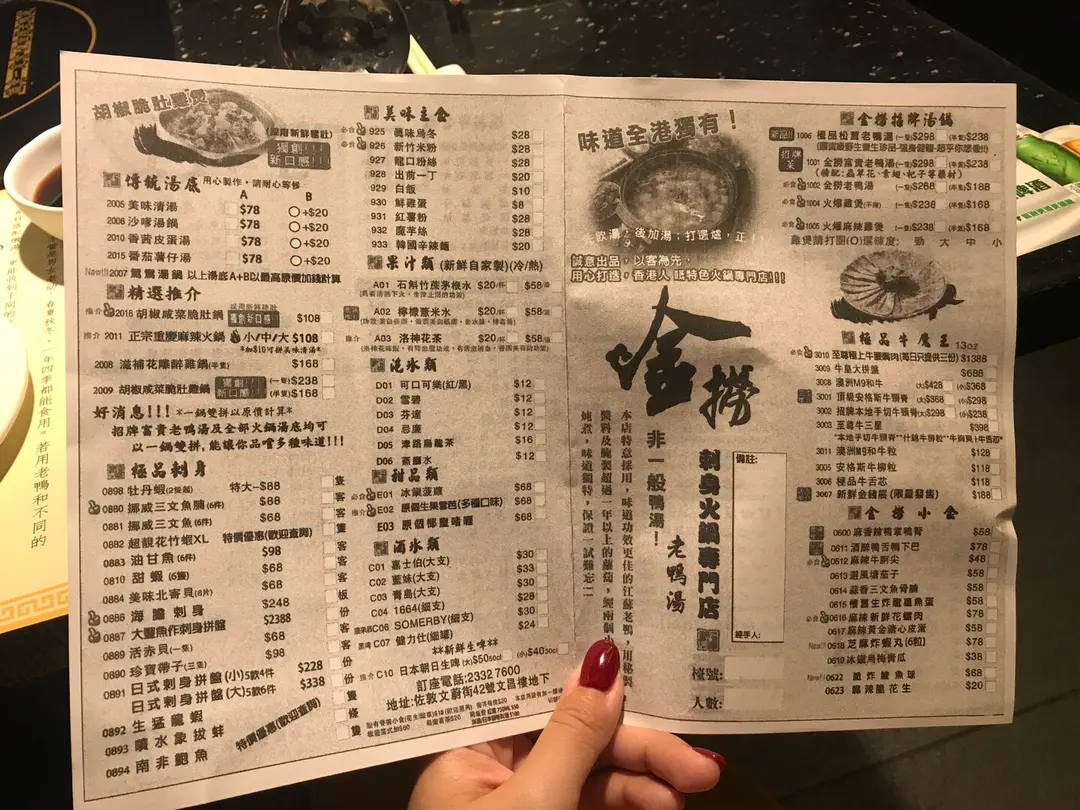 胡椒脆肚雞煲
(採用新鮮豬肚)
獨創!!!
新口感!!!
傳統湯底 用心製作,請耐心等候
A B
2005 美味清湯 $78 +$20
2006 沙嗲湯鍋 $78 +$20
2010 香茜皮蛋湯 $78 +$20
2015 番茄薯仔湯 $78 +$20
New!! 2007 鴛鴦湯鍋 以上湯底A+B以最高原價加錢計算
精選推介
推介 2016 胡椒咸菜脆肚鍋 $108
推介 2011 正宗重慶麻辣火鍋 小/中/大 $108
*加$10可拼美味清湯*
2008 滋補花雕醉雞鍋(半隻) $168
2009 胡椒咸菜脆肚雞鍋 獨創!!! 新口感!!! (一隻)$238
(半隻)$168
好消息!!! *一鍋雙拼以原價計算*
招牌富貴老鴨湯及全部火鍋湯底均可
以一鍋雙拼,能讓你品嚐多種味道!!!
極品刺身
0898 牡丹蝦(2隻裝) 特大-$88 隻
必食 0880 挪威三文魚腩(6件) $88 客
0881 挪威三文魚(6件) $88 客
0882 超靚花竹蝦XL 特價優惠(歡迎查詢) 隻
0883 油甘魚(6件) $98 客
0810 甜蝦(6隻) $68 客
0884 美味北寄貝(6片) $68 客
0886 海膽刺身 $248 板
0887 大豐魚作刺身拼盤 $2388 份
0889 活赤貝(一隻) $68
0890 珍寶帶子(三隻) $98 客
0891 日式刺身拼盤(小)5款4件 $228 份
日式刺身拼盤(大)5款6件 $338 份
0892 生猛龍蝦 隻
0893 噴水象拔蚌 特價優惠(歡迎查詢) 條
0894 南非鮑魚 隻
美味主食
必食 925 真味烏冬 $28
必食 926 新竹米粉 $28
927 龍口粉絲 $28
928 出前一丁 $20
929 白飯 $10
930 鮮雞蛋 $8
931 紅薯粉 $28
932 魔芋絲 $28
933 韓國辛辣麵 $20
果汁類 (新鮮自家製)(冷/熱)
A01 石斛竹蔗茅根水 $20/杯 $58/壺
A02 檸檬薏米水 $20/杯 $58/壺
推介 A03 洛神花茶 $20/杯 $58/壺
汽水類
D01 可口可樂(紅/黑) $12
D02 雪碧 $12
D03 芬達 $12
D04 忌廉 $12
D05 津路烏龍茶 $16
D06 蒸餾水 $12
甜品類
必食 E01 冰鎮菠蘿 $68
推介 E02 原個生果雪芭(多種口味) $68
E03 原個椰皇啫喱 $68
酒水類
C01 嘉士伯(大支) $30
C02 藍妹(大支) $33
C03 青島(大支) $30
C04 1664(細支) $28
C06 SOMERBY(細支) $30
黑啤 C07 健力仕(細罐) $24
**新鮮生啤**
推介 C10 日本朝日生啤 (大)$50/500cc (小)$40/300cc
訂座電話:2332 7600
地址:佐敦文蔚街42號文昌樓地下
味道全港獨有!
先飲湯,後加湯;打邊爐,正!
誠意出品,以客為先,
用心打造,香港人 唔特色火鍋專門店!!!
金撈
非一般鴨湯!
老鴨湯
刺身火鍋專門店
備註:
經手人:
檯號:
人數:
本店特意採用,味道功效更佳的江蘇老鴨,用秘製
醬料及醃製超過一年以上的蘿蔔,經兩個
炖煮,味道獨特,保證一試難忘!!
金撈招牌湯鍋
新品! 1006 極品松茸老鴨湯 (一隻)$298 (半隻)$238
招牌菜 1001 金撈富貴老鴨湯 (一隻)$298 (半隻)$238
(精配:蟲草花、素翅、杞子等藥材)
必食 1002 金撈老鴨湯 (一隻)$268 (半隻)$188
1004 火爆雞煲(不辣) (一隻)$238 (半隻)$168
必食 1005 火爆麻辣雞煲 (一隻)$238 (半隻)$168
雞煲請打圈(O)選辣度: 勁 大 中 小
極品牛魔王 13oz
必食 3010 至尊極上牛靈鷲肉(每日只提供三份) $1388
3009 牛皇大拼盤 $688
3008 澳洲M9和牛 (大)$428 (小)$368
3001 頂級安格斯牛頸脊 (大)$368 (小)$298
3002 招牌本地手切牛頸脊 (大)$298 (小)$238
3003 至尊牛三星 $398
3011 澳洲M9和牛粒 $128
3005 安格斯牛柳粒 $118
3006 極品牛舌芯 $118
3007 新鮮金錢𦟌 (限量發售) $188
金撈小食
0600 麻香辣鴨掌鴨腎 $58
0611 酒醉鴨舌鴨下巴 $78
必食 0612 麻辣牛脷尖 $48
0613 避風塘茄子 $58
0614 蒜香三文魚骨腩 $58
0615 欖薑生炸龍躉魚蛋 $58
必食 0616 麻辣新鮮花螺肉 $78
0617 麻辣黃金流心皮蛋 $58
New!! 0618 芝麻炸蝦丸(6粒) $78
0619 冰鎮烏梅青瓜 $38
New!! 0622 脆炸鯪魚球 $68
0623 麻辣脆花生 $20